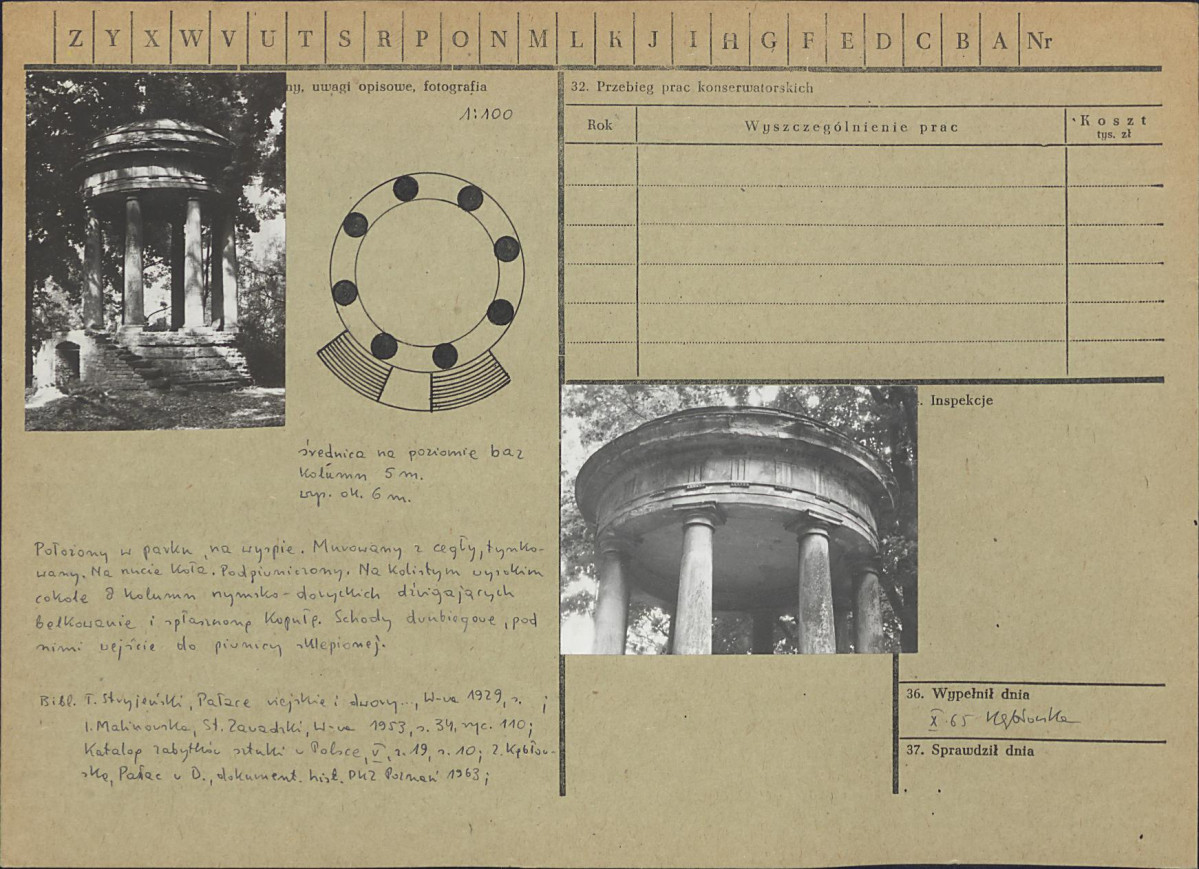 Z Y X W V U T S R P O N M L K J I H G F E D C B A Nr
ny, uwagi opisowe, fotografia
1:100
średnica na poziomie baz
kolumn 5 m.
wys. ok. 6 m.
Położony w parku, na wyspie. Murowany z cegły, tynko-
wany. Na rzucie koła. Podpiwniczony. Na kolistym wysokim
cokole 8 kolumn rzymsko-doryckich dźwigających
belkowanie i spłaszczoną kopułę. Schody dwubiegowe, pod
nimi wejście do piwnicy sklepionej.
Bibl. T. Stryjeński, Pałace wiejskie i dwory..., W-wa 1929, s. ;
I. Malinowska, St. Zawadzki, W-wa 1953, s. 34, ryc. 110;
Katalog zabytków sztuki w Polsce, V, z. 19, s. 10; Z. Kębłow-
ska, Pałac w D., dokument. hist. PKZ Poznań 1963;
32. Przebieg prac konserwatorskich
Rok
Wyszczególnienie prac
Koszt
tys. zł
. Inspekcje
36. Wypełnił dnia
X. 65 Kębłowska
37. Sprawdził dnia